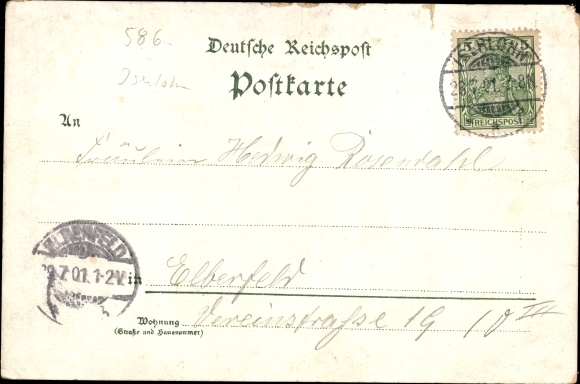 586.
Iserlohn
Deutsche Reichspost
Postkarte
ISERLOHN
REICHSPOST
An
Fräulein Hedwig Rosendahl
ELBERFELD
7.01.1-2V.
in Elberfeld
Wohnung
(Straße und Hausnummer)
Vereinstrasse 19 III